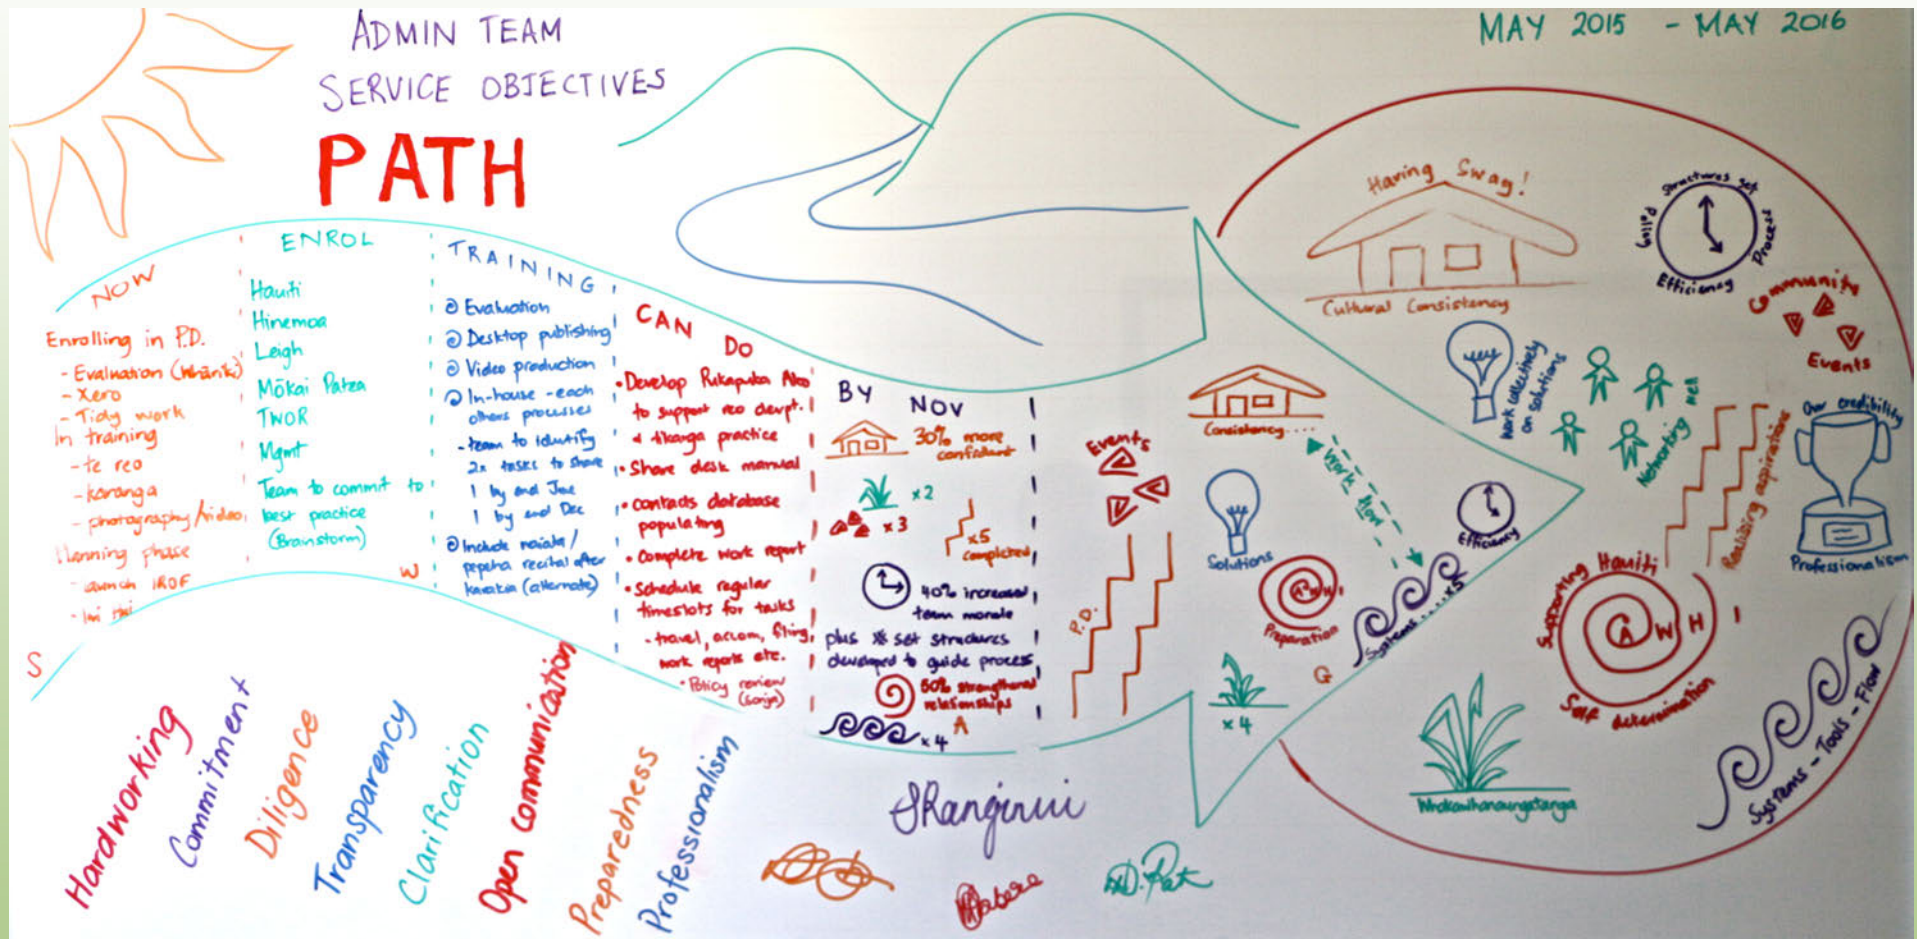 ADMIN TEAM
SERVICE OBJECTIVES
PATH
MAY 2015 - MAY 2016
NOW
Enrolling in P.D.
- Evaluation (whāriki)
- Xero
- Tidy work
In training
- te reo
- karanga
- photography/video
Planning phase
- launch IROF
ENROL
Hauiti
Hinemoa
Leigh
Mōkai Patea
TWOR
Mgmt
Team to commit to
best practice
(Brainstorm)
TRAINING
Evaluation
Desktop publishing
Video production
In-house - each
others processes
- team to identify
2x tasks to share
1 by end June
1 by end Dec
Include maiata /
pepeha recital after
karakia (alternate)
CAN DO
• Develop Pukapuka Ako
to support reo devpt.
& tikanga practice
• Share desk manual
• contacts database
populating
• Complete work report
• Schedule regular
timeslots for tasks
- travel, accom, filing,
work reports etc.
• Policy review
(Sonja)
BY NOV
30% more
confident
x2
x3
x5
completed
40% increased
team morale
plus set structures
developed to guide process
50% strengthened
relationships
x4
S
W
A
G
Events
P.D.
Consistency....
Work flow
Solutions
Efficiency
AWHI
Preparation
Systems....x5
x4
Having Swag!
Cultural Consistency
Structures set
Process
Efficiency
Filing
Community
Events
Work collectively
on solutions
Networking well
Realising aspirations
Our credibility
Professionalism
Supporting Hauiti
AWHI
Self determination
Whakawhanaungatanga
Systems - Tools - Flow
Hardworking
Commitment
Diligence
Transparency
Clarification
Open communication
Preparedness
Professionalism